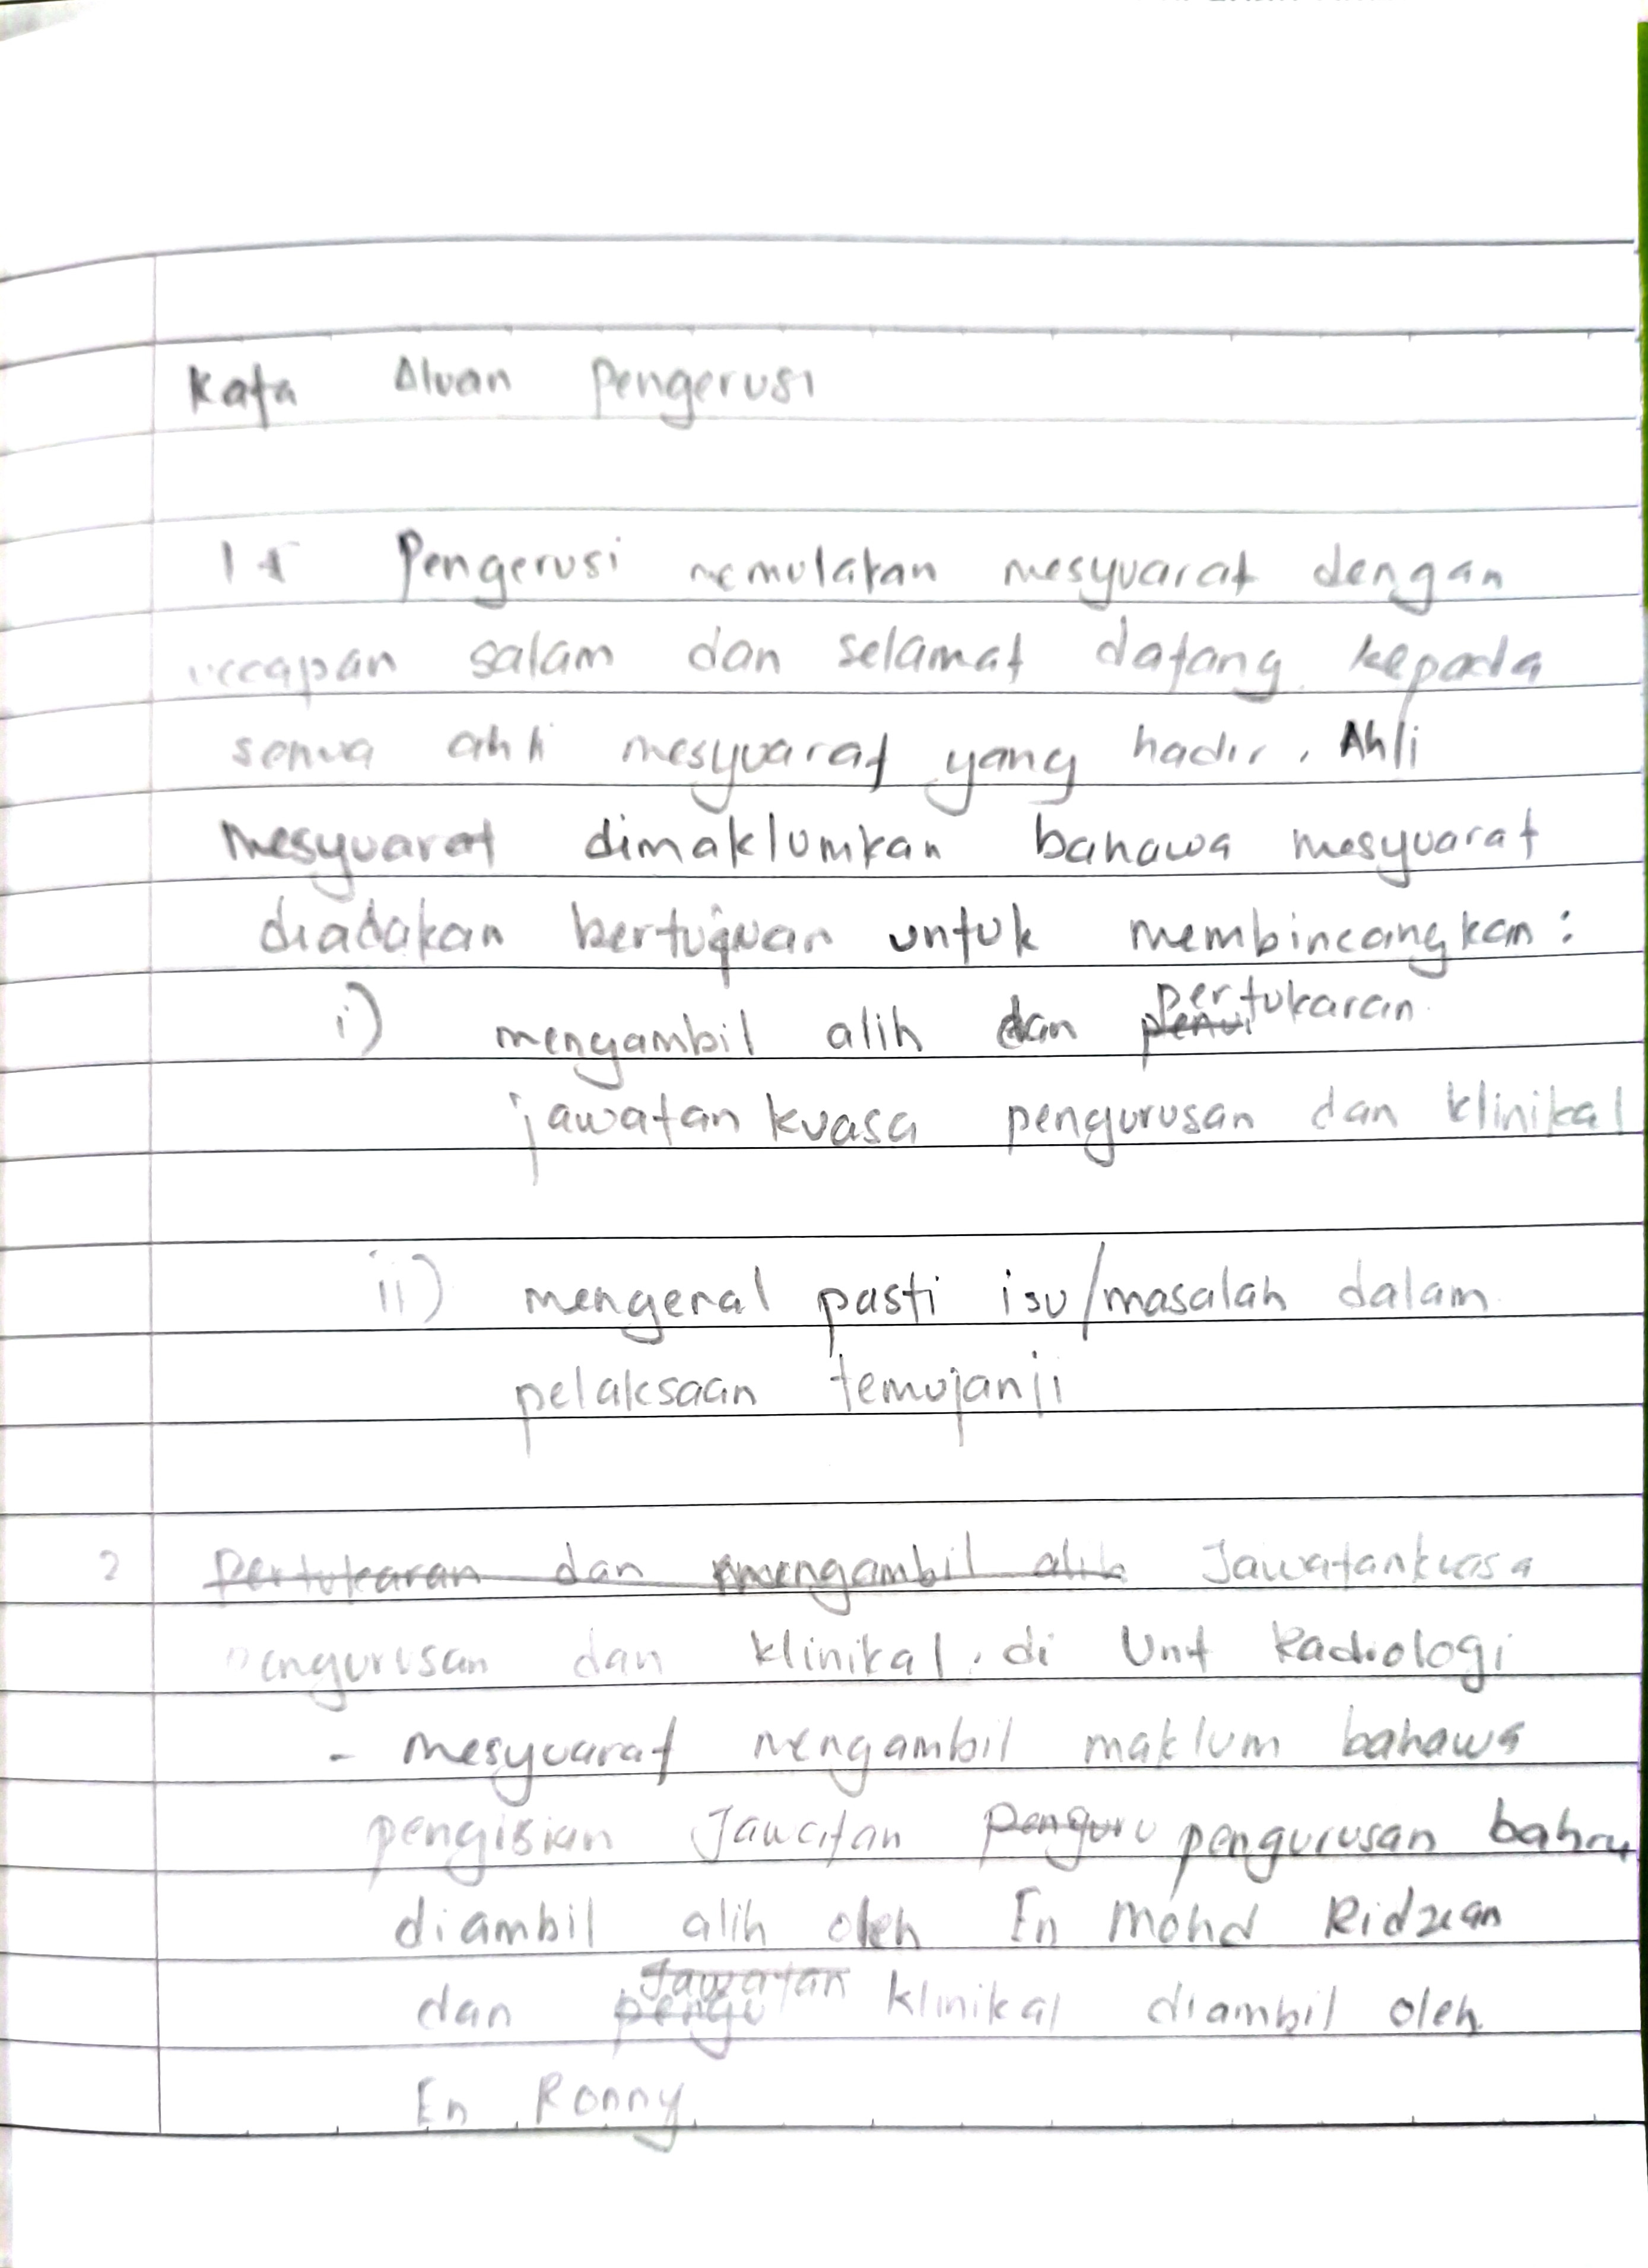 Kata Aluan Pengerusi
1. Pengerusi memulakan mesyuarat dengan
ucapan salam dan selamat datang kepada
semua ahli mesyuarat yang hadir. Ahli
Mesyuarat dimaklumkan bahawa mesyuarat
diadakan bertujuan untuk membincangkan:
i) mengambil alih dan pertukaran
jawatankuasa pengurusan dan klinikal
ii) mengenal pasti isu/masalah dalam
pelaksaan temujanji
2 Pertukaran dan mengambil alih Jawatankuasa
pengurusan dan klinikal. di Unit Radiologi
- Mesyuarat mengambil maklum bahawa
pengisian Jawatan Penguru pengurusan baharu
diambil alih oleh En Mohd Ridzuan
dan Jawatan klinikal diambil oleh
En Ronny